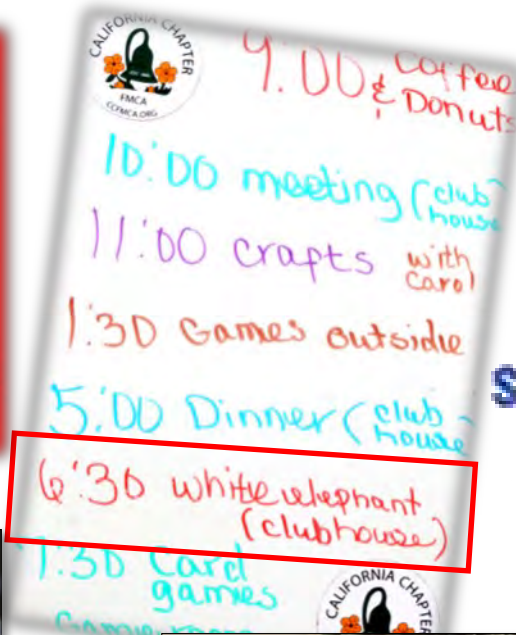 CALIFORNIA CHAPTER
FMCA
CCFMCA.ORG
9:00 Coffee
& Donuts
10:00 meeting (club
house
11:00 crafts with
Carol
1:30 Games outside
5:00 Dinner (club-
house
6:30 white elephant
(clubhouse)
7:30 Card
games
CALIFORNIA CHAPTER
S